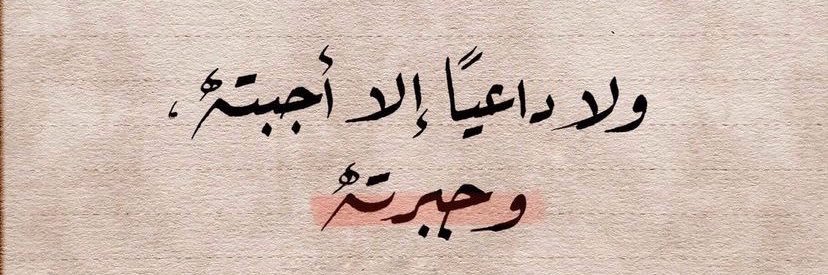 ولا داعيًا إلا أجبتهُ،
وجبرتهُ